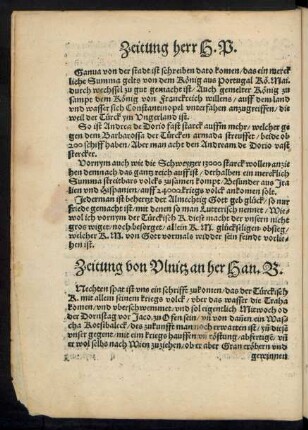 Zeitung herr H. P.
Ganua von der stadt ist schreiben dato komen/ das ein merck
liche Summa gelts von dem König aus Portugal Kö. Mai.
durch wechssel zu gut gemacht ist/ Auch gemelter König zu
sampt dem König von Franckreich willens/ auff dem land
und wasser sich Constantinopel unterstehen anzugreiffen/ die
weil der Türck ym Ungerland ist.
So ist Andrea de Dorio fast starck auffm mehr/ welcher ge
gen dem Barbarossa der Türckē armada streuffet/ beide ob
200 schiff haben/ Aber man acht den Andream de Dorio vast
stercker.
Vornym auch wie die Schweytzer 13000 starck wollen anzi
hen demnach das gantz reich auff ist/ derhalben ein mercklich
Summa streitbars volcks zusamen kompt/ Besunder aus Jta
lien und Hispanien/ auff 24000 kriegs volck ankomen sole.
Jederman ist behertzt der Almechtig Gott geb glück/ so nur
friede gemacht ist/ mit den so man Luterisch nennet/ Wie
wol ich vornym der Türckisch K. diese macht der unsern nicht
gros wiget/ noch besorget/ allein K. M. glückseligen obsieg/
welcher K. M. von Gott vormals widder sein feinde vorlie
hen ist.
Zeitung von Ulnitz an her Han. B.
Nechten spat ist uns ein schrifft zukomen/ das der Türckisch
K. mit allem seinem kriegs volck/ uber das wasser die Traha
komen/ und uberschwemmet/ und sol eigentlich Mitwoch od
der Dornstag vor Jaco. zu Ofen sein/ uñ von dañen ein Was
cha Vorstbaleck/ des zukunfft man noch erwarten ist/ zu dieser
unser gegent/ mit ein kriegs hauffen uñ röstung/ absertige/ uñ
er wol selbs nach Wien zuziehen/ ob er aber Gran eröbern und
gewinnen